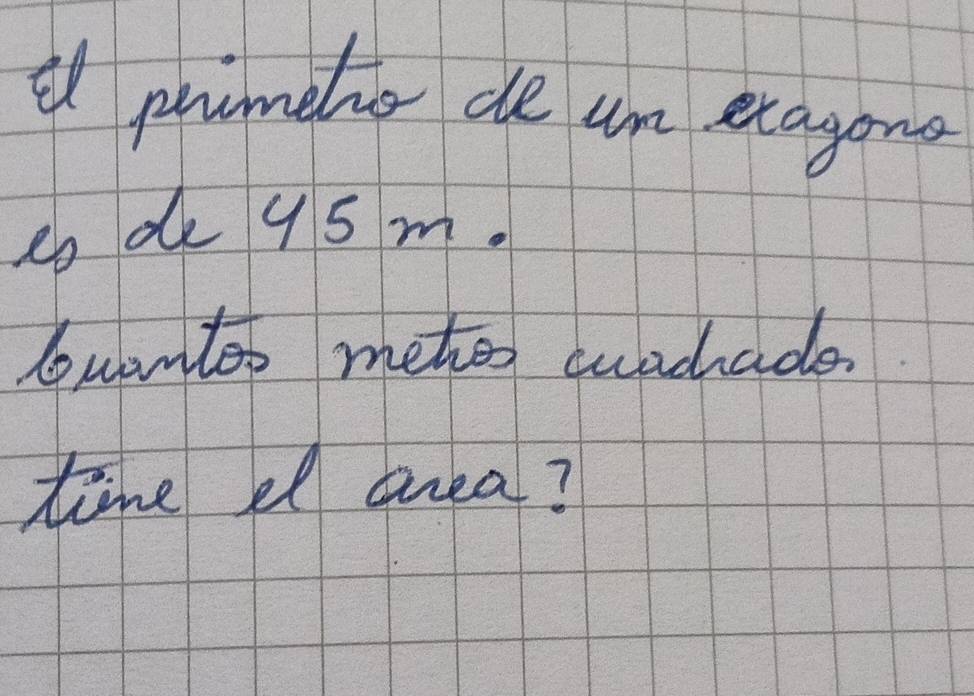 El perimetro de un exagono
es de 45 m.
Cuantos metros cuadrados
tiene el area?